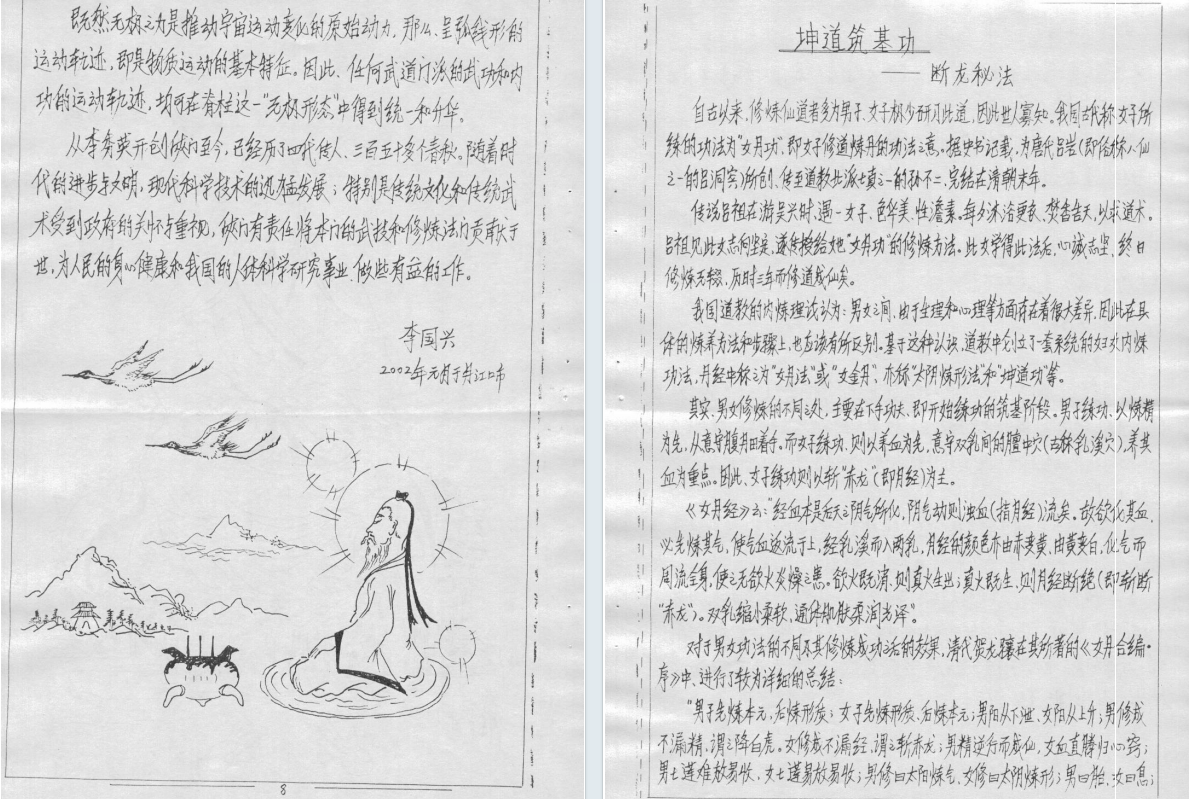 既然无极之力是推动宇宙运动变化的原始动力，那么、呈弧线形的
运动轨迹，即是物质运动的基本特征。因此、任何武道门派的武功和内
功的运动轨迹，均可在有在这一"无极形态"中得到统一和升华。
从李秀英开创侠门至今，已经历了四代传人、三百五十多个春秋。随着时
代的进步与文明，现代科学技术的迅猛发展；特别是传统文化和传统武
术受到政府的关怀与重视，侠门有责任将本门的武技和修炼法门贡献于
世，为人民的身心健康和我国的人体科学研究事业、做些有益的工作。
李国兴
2002年元月于丹江口市
8
坤道筑基功
—— 断龙秘法
自古以来，修炼仙道者多为男子、女子极少研习此道，因此世人寡知。我国古代称女子所
练的功法为"女丹功"、即女子修道炼丹的功法之意。据史书记载，为唐代吕岩（即俗称八仙
之一的吕洞宾）所创、传至道教北派七真之一的孙不二，完结在清朝末年。
传说吕祖在游吴兴时、遇一女子、色华美、性澹素。每夕沐浴更衣、焚香告天，以求道术。
吕祖见此女志向坚定，遂传授给她"女丹功"的修炼方法。此女学得此法后，心诚志坚、终日
修炼不辍，历时三年而修道成仙矣。
我国道教的内炼理论认为：男女之间、由于生理和心理等方面存在着很大差异，因此在具
体的炼养方法和步骤上，也应该有所区别。基于这种认识，道教中创立了一套系统的妇女内炼
功法，丹经中称之为"女丹法"或"女金丹"、亦称"太阴炼形法"和"坤道功"等。
其实、男女修炼的不同之处，主要在下手功夫、即开始练功的筑基阶段。男子练功、以炼精
为先，从意守腹丹田着手。而女子练功、则以养血为先，意守双乳间的膻中穴（古称乳溪穴），养其
血为重点。因此、女子练功则以斩"赤龙"（即月经）为主。
《女丹经》云："经血本是后天之阴气所化，阴气动则浊血（指月经）流矣。故欲化其血，
必先炼其气，使气血返流于上，经乳溪而入两乳，月经的颜色亦由赤变黄，由黄变白，化气而
周流全身，使之无欲火炎燥之患。欲火既消、则真火生出；真火既生、则月经断绝（即斩断
"赤龙"）。双乳缩小柔软，通体肌肤柔润光泽"。
对于男女功法的不同及其修炼成功之后的效果，清代贺龙骧在其所著的《女丹合编·
序》中、进行了较为详细的总结：
"男子先炼本元，后炼形质；女子先炼形质、后炼本元；男阳从下泄、女阳从上升；男修成
不漏精，谓之降白虎。女修成不漏经，谓之斩赤龙；男精逆行而成仙，女血直腾归心窍；
男七莲难放易收，女七莲易放易收；男修曰太阳炼气、女修曰太阴炼形；男曰胎、女曰息；